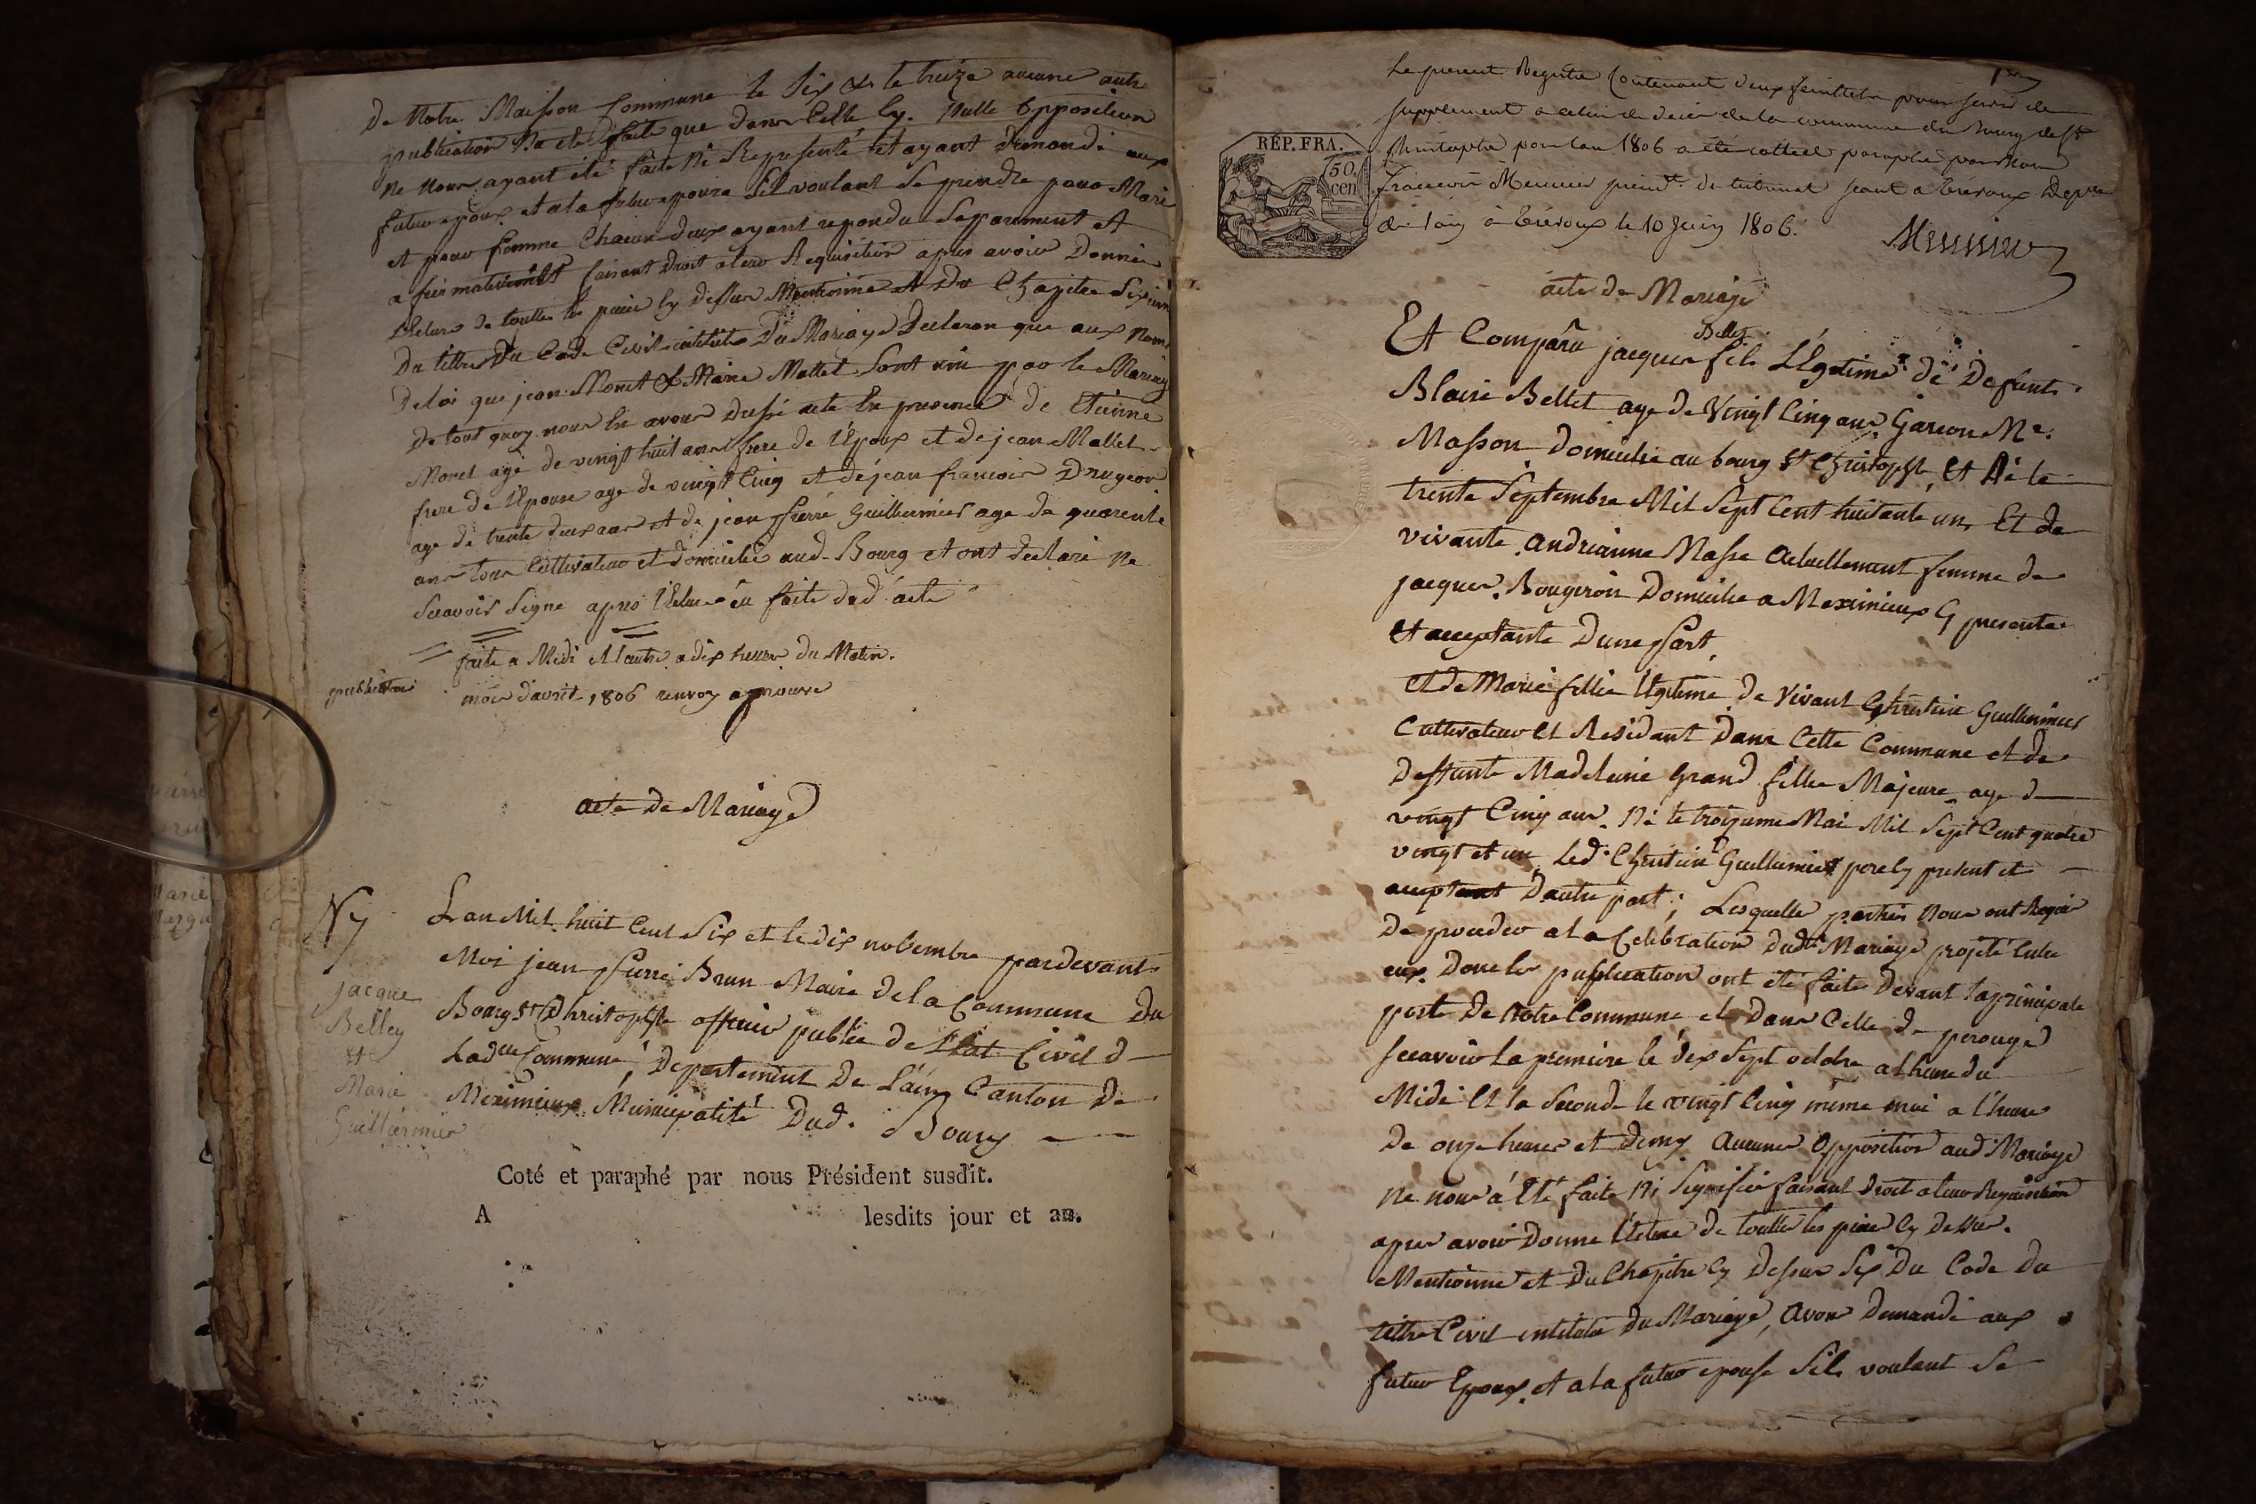 De Notre Maison Commune le six & le treize aucune autre
publication Na été faite que dans Celle Cy. Nulle Opposition
ne nous ayant été faite Ni Representé et ayant demandé aux
futur epoux et a la future epouze Sil voulant Se prendre pour Mari
et pour femme Chacun deux ayant repondu Separement et
affirmativement faisant Droit a leur Requisition apres avoir Donnée
Lecture de toutte les piece Cy dessus Mentionné et du Chapitre Sixieme
Du titre Du Code Civil intitulé Du Mariage Declaron que aux Nom
De loi que jean Moret & Marie Mallet Sont uni par le Mariage
De tout quoy nous En avons Dressé acte En presence de Etienne
Moret agé de vingt huit ans frere de l'Epoux et de jean Mallet
frere de l'Epouse age de vingt Cinq et de jean francois Drugeon
age de trente deux ans et de jean pierre Guillermier age de quarente
ans tous Cultivateur et domicilié aud. Bourg et ont declaré Ne
Scavoir Signe apres lecture éu faite dud acte
faite a Midi et l'autre a dix heures du Matin.
publication
mois d'avril 1806 renvoy aprouvé
acte De Mariage
Jacque
Belley
et
Marie
Guillermier
L'an Mil huit Cent Six et le dix novembre pardevant
Moi jean pierre Brun Maire de la Commune Du
Bourg St Christophe officier publice de l'Etat Civil d
Ladte Commune, Departement De L'ain Canton De
Meximieux Municipalité Dud. Bourg
Coté et paraphé par nous Président susdit.
A lesdits jour et an.
Le present Registre Contenant deux feuillets pour servir de
supplement a celui de deces de la commune du Bourg de St
Christophe pour l'an 1806 a été cotté et paraphé par nous
francois Meunier presidt du tribunal seant a trevoux Depte
de l'ain à trévoux le 10 Juin 1806.
Meunier
RÉP. FRA.
50 cen
acte de Mariage
Bellet
Et Comparu jacques fils Légitime de Defunt
Blaise Bellet age de Vingt Cinq ans Garcon Me
Masson Domicilié au bourg St Christophe, Et Né le
trente Septembre Mil Sept Cent huitante un Et de
vivante andrianne Masse actuellement femme de
jacques Bougeron Domicilié a Meximieux Cy presente
Et acceptante D'une part,
Et de Marie fillie legitime de Vivant Christin Guillermier
Cultivateur Et Residant Dans Cette Commune et de
Deffunte Madeleine Grand fillie Majeure age d
vingt Cinq ans Né le troizieme Mai Mil Sept Cent quatre
vingt et un Led. Christin Guillermier pere Cy present et
acceptant D'autre part; Lesquelle parties Nous ont Requis
De proceder a la Celebration Dudt Mariage projeté Entre
eux Dont les publication ont été faite Devant la principale
porte De Notre Commune et Dans Celle de perouge
Scavoir La premiere le dix Sept octobre a lheure du
Midi Et la Seconde le vingt Cinq même moi a l'heure
De onze heures et Demy aucune Opposition aud Mariage
Ne nous a Eté faite Ni Signifié faisant Droit a leur Requisition
apres avoir Donné Lecture de toutte les piece Cy Dessus
Mentionné et Du Chapitre Cy Dessus Six Du Code Du
titre Civil intitulé Du Mariage, avons Demandé aux
futur Epoux et a la futur epouse Sils voulant Se